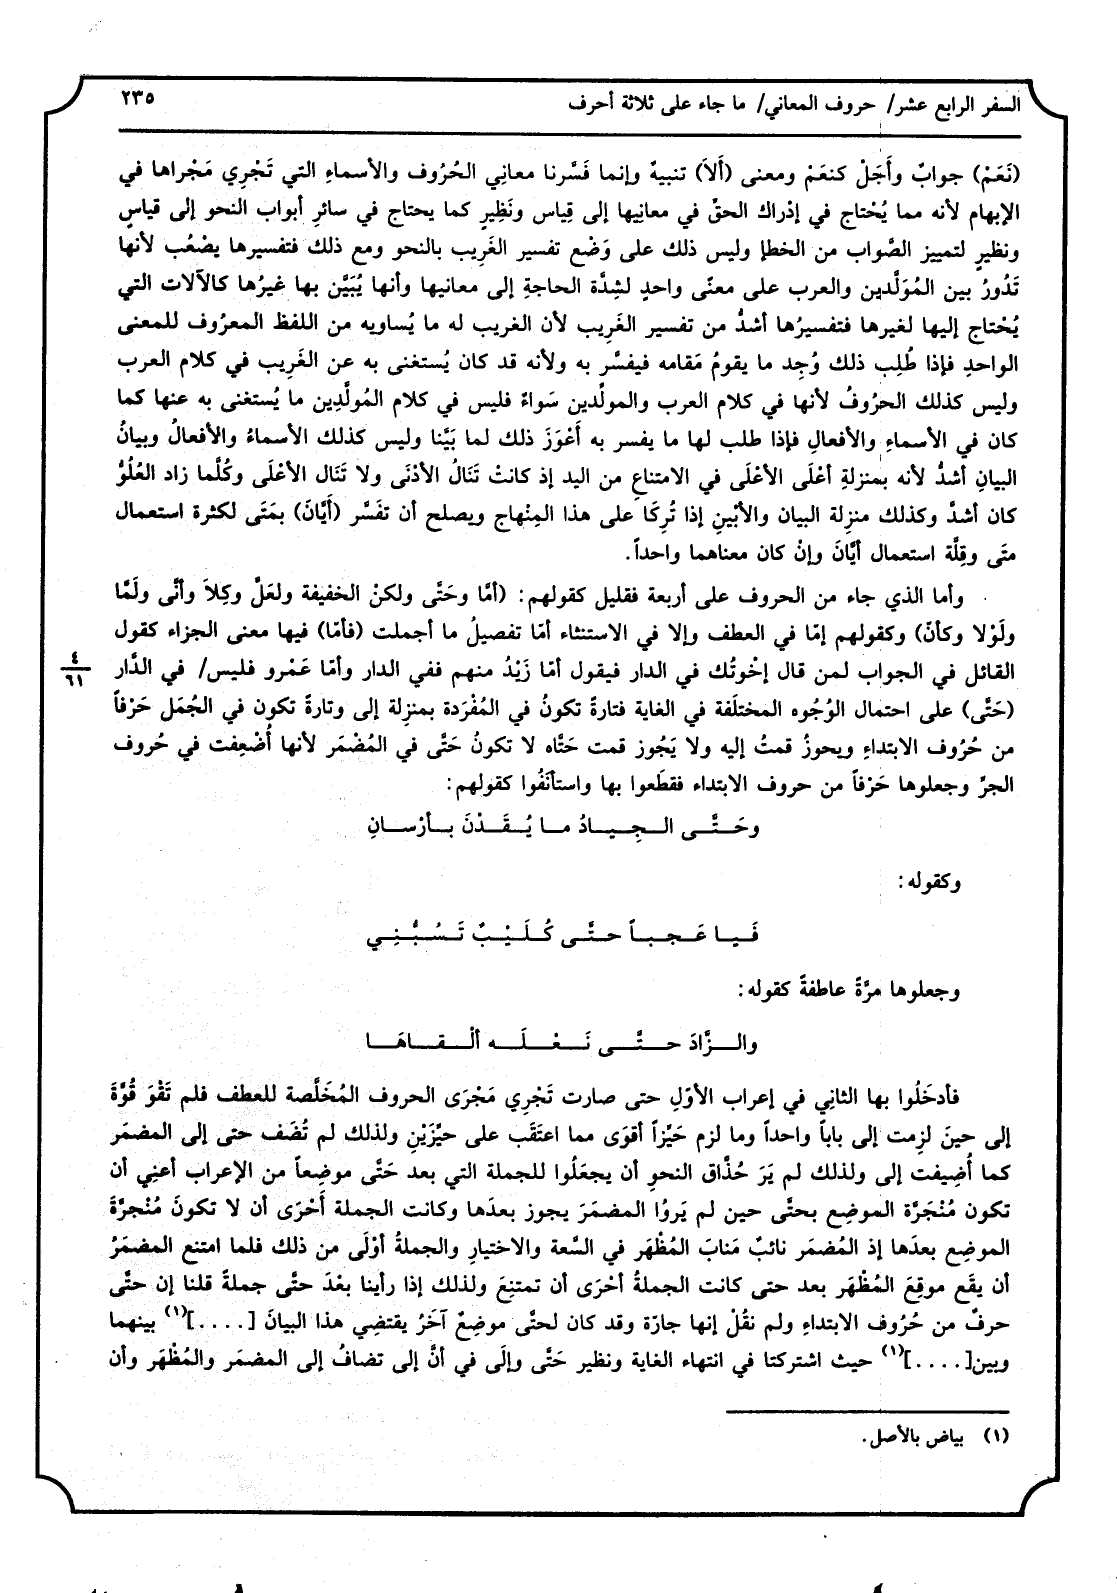 السفر الرابع عشر/ حروف المعاني/ ما جاء على ثلاثة أحرف
٢٣٥
(نَعَمْ) جوابٌ وأَجَلْ كنعَمْ ومعنى (أَلاَ) تنبيهٌ وإنما فَسَّرنا معانِي الحُرُوف والأسماءِ التي تَجْرِي مَجْراها في
الإبهام لأنه مما يُحْتاج في إدْراك الحقِّ في معانِيها إلى قِياس ونَظِيرٍ كما يحتاج في سائرِ أبواب النحو إلى قياسٍ
ونظيرٍ لتمييز الصَّواب من الخطإ وليس ذلك على وَضْع تفسير الغَرِيب بالنحو ومع ذلك فتفسيرها يصْعُب لأنها
تَدُورُ بين المُوَلَّدين والعرب على معنًى واحدٍ لشِدَّة الحاجةِ إلى معانيها وأنها يُبَيَّن بها غيرُها كالآلات التي
يُحْتاج إليها لغيرها فتفسيرُها أشدُّ من تفسير الغَرِيب لأن الغريب له ما يُساويه من اللفظ المعرُوف للمعنى
الواحدِ فإذا طُلِب ذلك وُجِد ما يقومُ مَقامه فيفسَّر به ولأنه قد كان يُستغنى به عن الغَرِيب في كلام العرب
وليس كذلك الحرُوفُ لأنها في كلام العرب والمولَّدين سَواءٌ فليس في كلام المُولَّدِين ما يُستغنى به عنها كما
كان في الأسماءِ والأفعالِ فإذا طلب لها ما يفسر به أَعْوَزَ ذلك لما بَيَّنا وليس كذلك الأسماءُ والأفعالُ وبيانُ
البيانِ أشدُّ لأنه بمنزلةِ أعْلَى الأعْلَى في الامتناعِ من اليد إذ كانتْ تَنَالُ الأدْنَى ولا تَنَال الأعْلَى وكُلَّما زاد العُلُوُّ
كان أشدَّ وكذلك منزلة البيان والأبْينِ إذا تُرِكَا على هذا المِنْهاج ويصلح أن تفَسَّر (أَيَّانَ) بمَتَى لكثرة استعمال
متَى وقِلَّة استعمال أيَّانَ وإنْ كان معناهما واحداً.
وأما الذي جاء من الحروف على أربعة فقليل كقولهم: (أمَّا وحَتَّى ولكنْ الخفيفة ولعَلَّ وكِلاَ وأنَّى ولَمَّا
ولَوْلا وكأنّ) وكقولهم إمّا في العطف وإلا في الاستثناء أمّا تفصيلُ ما أجملت (فأمّا) فيها معنى الجزاء كقول
القائل في الجواب لمن قال إخْوتُك في الدار فيقول أمّا زَيْدُ منهم ففي الدار وأمّا عَمْرو فليس/ في الدَّار
٤
٦١
(حَتَّى) على احتمال الوُجُوه المختلَفة في الغاية فتارةً تكونُ في المُفْرَدة بمنزلة إلى وتارةً تكون في الجُمَل حَرْفاً
من حُرُوف الابتداءِ ويحوزُ قمتُ إليه ولا يَجُوز قمت حَتَّاه لا تكونُ حَتَّى في المُضْمَر لأنها أُضْعِفت في حُروف
الجرِّ وجعلوها حَرْفاً من حروف الابتداء فقطَعوا بها واستأنَفُوا كقولهم:
وحَتَّى الجِيادُ ما يُقَدْنَ بأرْسانِ
وكقوله:
فَيا عَجباً حتَّى كُلَيْبٌ تَسُبُّنِي
وجعلوها مرَّةً عاطفةً كقوله:
والزَّادَ حتَّى نَعْلَه ألْقاهَا
فأدخَلُوا بها الثانِي في إعراب الأوّلِ حتى صارت تَجْرِي مَجْرَى الحروف المُخَلَّصة للعطف فلم تَقْوَ قُوَّةَ
إلى حينَ لزِمت إلى باباً واحداً وما لزم حَيِّزاً أقوَى مما اعتَقَب على حيِّزَيْنِ ولذلك لم تُضَف حتى إلى المضمَر
كما أُضِيفت إلى ولذلك لم يَرَ حُذَّاق النحوِ أن يجعَلُوا للجملة التي بعد حَتَّى موضِعاً من الإعراب أعنِي أن
تكون مُنْجَرَّة الموضِع بحتَّى حين لم يَروُا المضمَرَ يجوز بعدَها وكانت الجملة أَحْرَى أن لا تكونَ مُنْجرَّةَ
الموضِع بعدَها إذ المُضمَر نائبٌ مَنابَ المُظْهَر في السَّعة والاختيارِ والجملةُ أوْلَى من ذلك فلما امتنع المضمَرُ
أن يقَع موقِعَ المُظْهَر بعد حتى كانت الجملةُ أحْرَى أن تمتنِعَ ولذلك إذا رأينا بعْدَ حتَّى جملةً قلنا إن حتَّى
حرفٌ من حُرُوف الابتداءِ ولم نقُلْ إنها جارّة وقد كان لحتَّى موضِعٌ آخَرُ يقتضِي هذا البيانَ [....](١) بينهما
وبين[....](١) حيث اشتركتا في انتهاء الغاية ونظير حَتَّى وإلَى في أنَّ إلى تضافُ إلى المضمَر والمُظْهَر وأن
(١) بياض بالأصل.